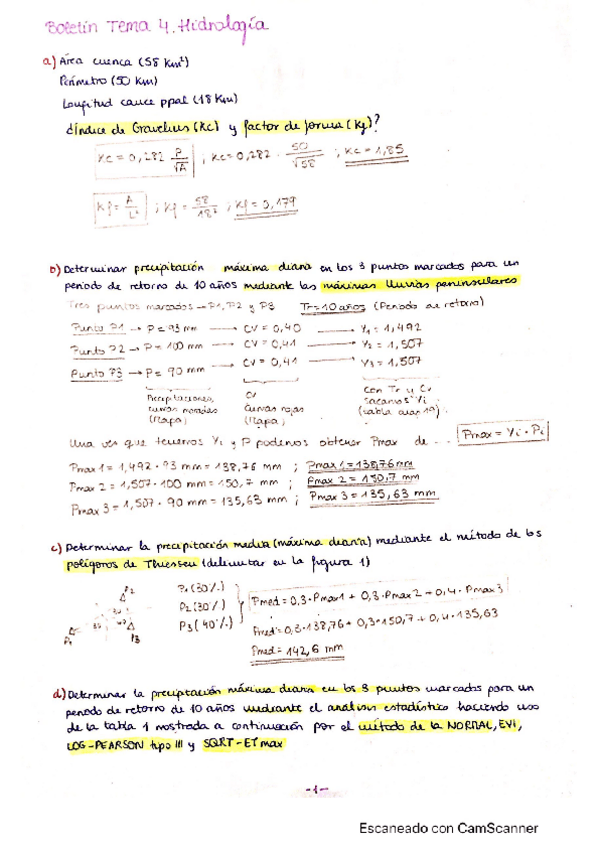 Boletín Tema 4. Hidrología
a) Área cuenca (58 Km²)
Perímetro (50 Km)
Longitud cauce ppal (18 Km)
¿Índice de Gravelius (Kc) y factor de forma (Kf)?
Kc = 0,282 P/√A ; Kc = 0,282 · 50/√58 ; Kc = 1,85
Kf = A/L² ; Kf = 58/18² ; Kf = 0,179
b) Determinar precipitación máxima diaria en los 3 puntos marcados para un
periodo de retorno de 10 años mediante las máximas lluvias peninsulares
Tres puntos marcados → P1, P2 y P3 Tr = 10 años (Periodo de retorno)
Punto P1 → P = 93 mm → CV = 0,40 → Y1 = 1,492
Punto P2 → P = 100 mm → CV = 0,41 → Y2 = 1,507
Punto P3 → P = 90 mm → CV = 0,41 → Y3 = 1,507
Precipitaciones, curvas moradas (Mapa)
CV Curvas rojas (Mapa)
Con Tr y Cv sacamos Yi (tabla diap 19)
Una vez que tenemos Yi y P podemos obtener Pmax de ... Pmax = Yi · Pi
Pmax 1 = 1,492 · 93 mm = 138,76 mm ; Pmax 1 = 138,76 mm
Pmax 2 = 1,507 · 100 mm = 150,7 mm ; Pmax 2 = 150,7 mm
Pmax 3 = 1,507 · 90 mm = 135,63 mm ; Pmax 3 = 135,63 mm
c) Determinar la precipitación media (máxima diaria) mediante el método de los
polígonos de Thiessen (delimitar en la figura 1)
P2
P1
P3
P1 (30%)
P2 (30%)
P3 (40%)
Pmed = 0,3 · Pmax1 + 0,3 · Pmax2 + 0,4 · Pmax3
Pmed = 0,3 · 138,76 + 0,3 · 150,7 + 0,4 · 135,63
Pmed = 142,6 mm
d) Determinar la precipitación máxima diaria en los 3 puntos marcados para un
periodo de retorno de 10 años mediante el análisis estadístico haciendo uso
de la tabla 1 mostrada a continuación por el método de la NORMAL, EVI,
LOG-PEARSON tipo III y SQRT-ET max
-1-
Escaneado con CamScanner